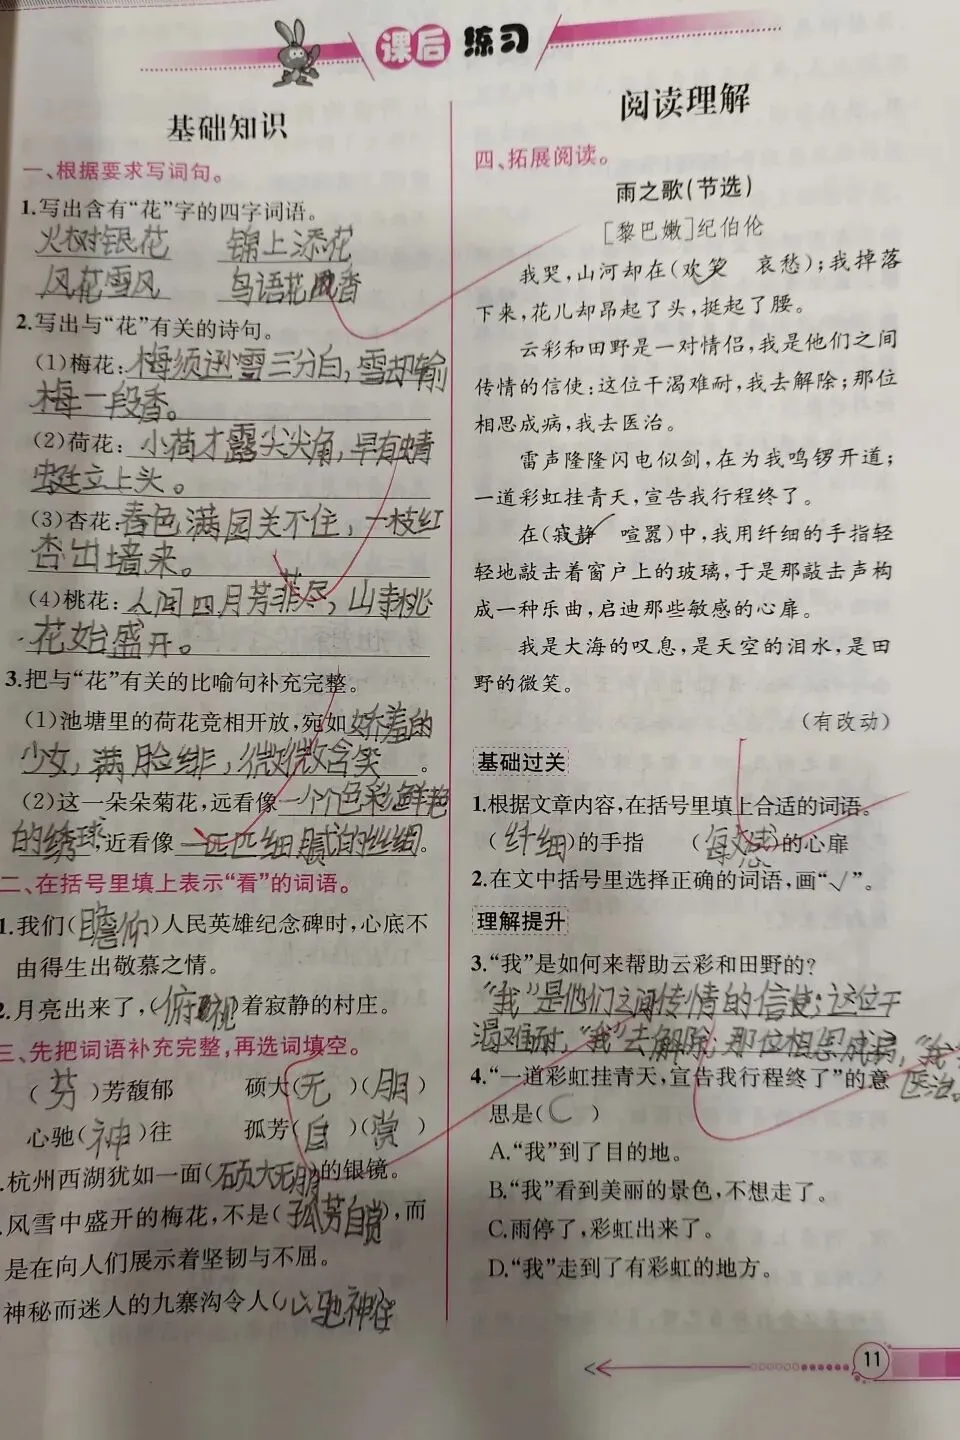 课后练习
基础知识
一、根据要求写词句。
1.写出含有“花”字的四字词语。
火树银花 锦上添花
风花雪风 鸟语花香
2.写出与“花”有关的诗句。
(1)梅花:梅须逊雪三分白,雪却输
梅一段香。
(2)荷花:小荷才露尖尖角,早有蜻
蜓立上头。
(3)杏花:春色满园关不住,一枝红
杏出墙来。
(4)桃花:人间四月芳菲尽,山寺桃
花始盛开。
3.把与“花”有关的比喻句补充完整。
(1)池塘里的荷花竞相开放,宛如娇羞的
少女,满脸绯,微微含笑。
(2)这一朵朵菊花,远看像一个个色彩鲜艳
的绣球,近看像一匹匹细腻的丝绸。
二、在括号里填上表示“看”的词语。
1.我们(瞻仰)人民英雄纪念碑时,心底不
由得生出敬慕之情。
2.月亮出来了,(俯视)着寂静的村庄。
三、先把词语补充完整,再选词填空。
(芬)芳馥郁 硕大(无)(朋)
心驰(神)往 孤芳(自)(赏)
.杭州西湖犹如一面(硕大无朋)的银镜。
.风雪中盛开的梅花,不是(孤芳自赏),而
是在向人们展示着坚韧与不屈。
神秘而迷人的九寨沟令人(心驰神往)。
阅读理解
四、拓展阅读。
雨之歌(节选)
[黎巴嫩]纪伯伦
我哭,山河却在(欢笑 哀愁);我掉落
下来,花儿却昂起了头,挺起了腰。
云彩和田野是一对情侣,我是他们之间
传情的信使:这位干渴难耐,我去解除;那位
相思成病,我去医治。
雷声隆隆闪电似剑,在为我鸣锣开道;
一道彩虹挂青天,宣告我行程终了。
在(寂静 喧嚣)中,我用纤细的手指轻
轻地敲击着窗户上的玻璃,于是那敲击声构
成一种乐曲,启迪那些敏感的心扉。
我是大海的叹息,是天空的泪水,是田
野的微笑。
(有改动)
基础过关
1.根据文章内容,在括号里填上合适的词语。
(纤细)的手指 (敏感)的心扉
2.在文中括号里选择正确的词语,画“√”。
理解提升
3.“我”是如何来帮助云彩和田野的?
“我”是他们之间传情的信使:这位干
渴难耐,“我”去解除;那位相思成病,“我去
医治。
4.“一道彩虹挂青天,宣告我行程终了”的意
思是(C)
A.“我”到了目的地。
B.“我”看到美丽的景色,不想走了。
C.雨停了,彩虹出来了。
D.“我”走到了有彩虹的地方。
11